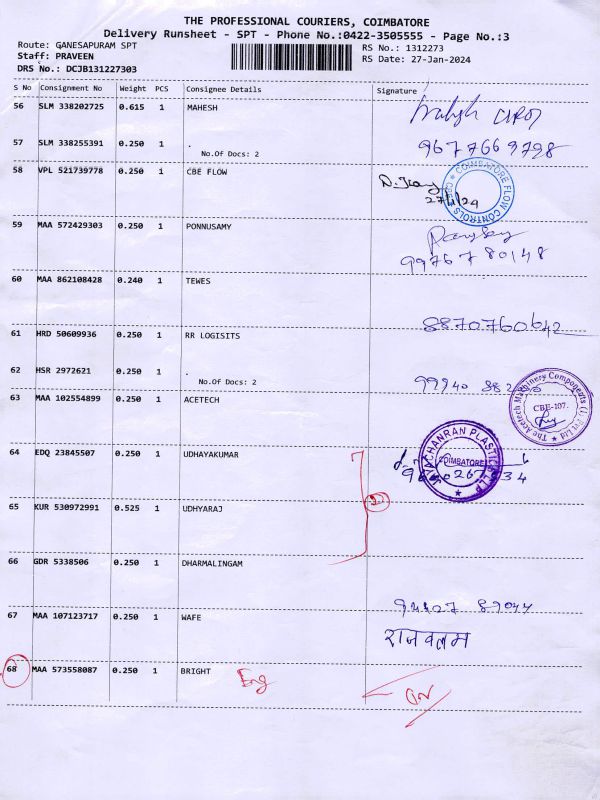 THE PROFESSIONAL COURIERS, COIMBATORE
Delivery Runsheet - SPT - Phone No.:0422-3505555 - Page No.:3
Route: GANESAPURAM SPT
RS No.: 1312273
Staff: PRAVEEN
RS Date: 27-Jan-2024
DRS No.: DCJB131227303
S No Consignment No Weight PCS Consignee Details Signature
56 SLM 338202725 0.615 1 MAHESH
57 SLM 338255391 0.250 1 .
9677669798
No.Of Docs: 2
58 VPL 521739778 0.250 1 CBE FLOW
27/1/24
COIMBATORE FLOW CONTROLS
59 MAA 572429303 0.250 1 PONNUSAMY
99767 80148
60 MAA 862108428 0.240 1 TEWES
8870760642
61 HRD 50609936 0.250 1 RR LOGISITS
62 HSR 2972621 0.250 1 .
No.Of Docs: 2
99940
63 MAA 102554899 0.250 1 ACETECH
The Acetech Machinery Components (I) Pvt Ltd
CBE-107.
64 EDQ 23845507 0.250 1 UDHAYAKUMAR
PLASTICS LLP
COIMBATORE
65 KUR 530972991 0.525 1 UDHYARAJ
66 GDR 5338506 0.250 1 DHARMALINGAM
67 MAA 107123717 0.250 1 WAFE
राजवलम
68 MAA 573558087 0.250 1 BRIGHT
Eng